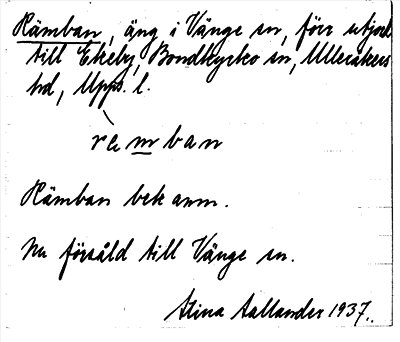 Rämban, äng i Vänge sn, förr utjord
till Ekeby, Bondkyrko sn, Ulleråkers
hd, Upps. l.
ramban
Rämban bek anm.
Nu försåld till Vänge sn.
Stina Aallander 1937.